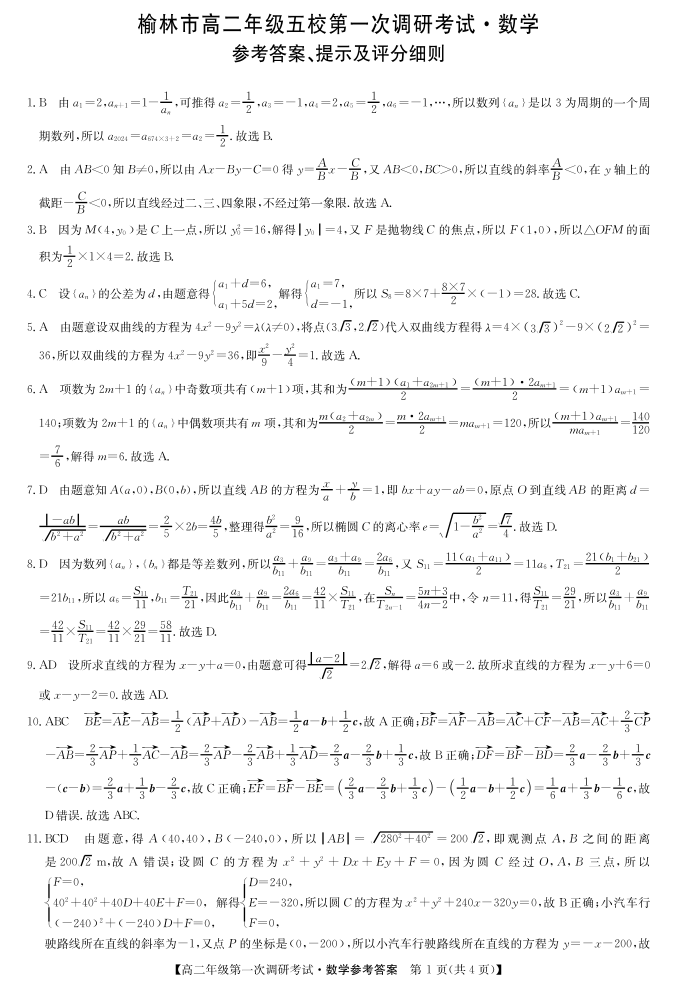 榆林市高二年级五校第一次调研考试·数学
参考答案、提示及评分细则
1. B 由 a₁=2,aₙ₊₁=1-1/aₙ,可推得 a₂=1/2,a₃=-1,a₄=2,a₅=1/2,a₆=-1,…,所以数列{aₙ}是以 3 为周期的一个周
期数列,所以 a₂₀₂₄=a₆₇₄ₓ₃₊₂=a₂=1/2. 故选 B.
2. A 由 AB<0 知 B≠0,所以由 Ax-By-C=0 得 y=A/B x-C/B,又 AB<0,BC>0,所以直线的斜率 A/B<0,在 y 轴上的
截距-C/B<0,所以直线经过二、三、四象限,不经过第一象限. 故选 A.
3. B 因为 M(4,y₀)是 C 上一点,所以 y₀²=16,解得|y₀|=4,又 F 是抛物线 C 的焦点,所以 F(1,0),所以△OFM 的面
积为 1/2×1×4=2. 故选 B.
4. C 设{aₙ}的公差为 d,由题意得{a₁+d=6, a₁+5d=2, 解得{a₁=7, d=-1, 所以 S₈=8×7+(8×7)/2×(-1)=28. 故选 C.
5. A 由题意设双曲线的方程为 4x²-9y²=λ(λ≠0),将点(3√3,2√2)代入双曲线方程得 λ=4×(3√3)²-9×(2√2)²=
36,所以双曲线的方程为 4x²-9y²=36,即 x²/9-y²/4=1. 故选 A.
6. A 项数为 2m+1 的{aₙ}中奇数项共有(m+1)项,其和为 (m+1)(a₁+a₂ₘ₊₁)/2=(m+1)·2aₘ₊₁/2=(m+1)aₘ₊₁=
140;项数为 2m+1 的{aₙ}中偶数项共有 m 项,其和为 m(a₂+a₂ₘ)/2=m·2aₘ₊₁/2=maₘ₊₁=120,所以 (m+1)aₘ₊₁/maₘ₊₁=140/120
=7/6,解得 m=6. 故选 A.
7. D 由题意知 A(a,0),B(0,b),所以直线 AB 的方程为 x/a+y/b=1,即 bx+ay-ab=0,原点 O 到直线 AB 的距离 d=
|-ab|/√(b²+a²)=ab/√(b²+a²)=2/5×2b=4b/5,整理得 b²/a²=9/16,所以椭圆 C 的离心率 e=√(1-b²/a²)=√7/4. 故选 D.
8. D 因为数列{aₙ},{bₙ}都是等差数列,所以 a₃/b₁₁+a₉/b₁₁=(a₃+a₉)/b₁₁=2a₆/b₁₁,又 S₁₁=11(a₁+a₁₁)/2=11a₆,T₂₁=21(b₁+b₂₁)/2
=21b₁₁,所以 a₆=S₁₁/11,b₁₁=T₂₁/21,因此 a₃/b₁₁+a₉/b₁₁=2a₆/b₁₁=42/11×S₁₁/T₂₁,在 Sₙ/T₂ₙ₋₁=(5n+3)/(4n-2)中,令 n=11,得 S₁₁/T₂₁=29/21,所以 a₃/b₁₁+a₉/b₁₁
=42/11×S₁₁/T₂₁=42/11×29/21=58/11. 故选 D.
9. AD 设所求直线的方程为 x-y+a=0,由题意可得 |a-2|/√2=2√2,解得 a=6 或-2. 故所求直线的方程为 x-y+6=0
或 x-y-2=0. 故选 AD.
10. ABC BE→=AE→-AB→=1/2(AP→+AD→)-AB→=1/2a-b+1/2c,故 A 正确;BF→=AF→-AB→=AC→+CF→-AB→=AC→+2/3CP→
-AB→=2/3AP→+1/3AC→-AB→=2/3AP→-2/3AB→+1/3AD→=2/3a-2/3b+1/3c,故 B 正确;DF→=BF→-BD→=2/3a-2/3b+1/3c
-(c-b)=2/3a+1/3b-2/3c,故 C 正确;EF→=BF→-BE→=(2/3a-2/3b+1/3c)-(1/2a-b+1/2c)=1/6a+1/3b-1/6c,故
D 错误. 故选 ABC.
11. BCD 由题意,得 A(40,40),B(-240,0),所以|AB|=√(280²+40²)=200√2,即观测点 A,B 之间的距离
是 200√2 m,故 A 错误;设圆 C 的方程为 x²+y²+Dx+Ey+F=0,因为圆 C 经过 O,A,B 三点,所以
{F=0, 40²+40²+40D+40E+F=0, (-240)²+(-240)D+F=0, 解得{D=240, E=-320, F=0, 所以圆 C 的方程为 x²+y²+240x-320y=0,故 B 正确;小汽车行
驶路线所在直线的斜率为-1,又点 P 的坐标是(0,-200),所以小汽车行驶路线所在直线的方程为 y=-x-200,故
【高二年级第一次调研考试·数学参考答案 第 1 页(共 4 页)】